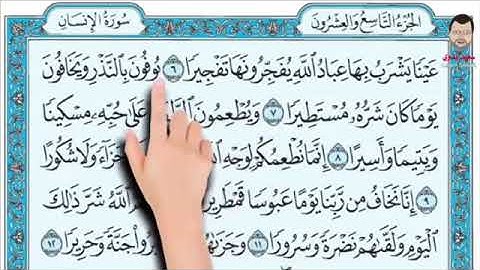 الجُزْءُ التَّاسِعُ وَالعِشْرُونَ
سُورَةُ الإِنسَانِ
عَيْنًا يَشْرَبُ بِهَا عِبَادُ اللَّهِ يُفَجِّرُونَهَا تَفْجِيرًا ٦ يُوفُونَ بِالنَّذْرِ وَيَخَافُونَ
يَوْمًا كَانَ شَرُّهُ مُسْتَطِيرًا ٧ وَيُطْعِمُونَ عَلَىٰ حُبِّهِ مِسْكِينًا
وَيَتِيمًا وَأَسِيرًا ٨ إِنَّمَا نُطْعِمُكُمْ لِوَجْهِ جَزَاءً وَلَا شُكُورًا
٩ إِنَّا نَخَافُ مِن رَّبِّنَا يَوْمًا عَبُوسًا قَمْطَرِيرًا اللَّهُ شَرَّ ذَٰلِكَ
الْيَوْمِ وَلَقَّىٰهُمْ نَضْرَةً وَسُرُورًا ١١ وَجَزَىٰهُم جَنَّةً وَحَرِيرًا ١٢